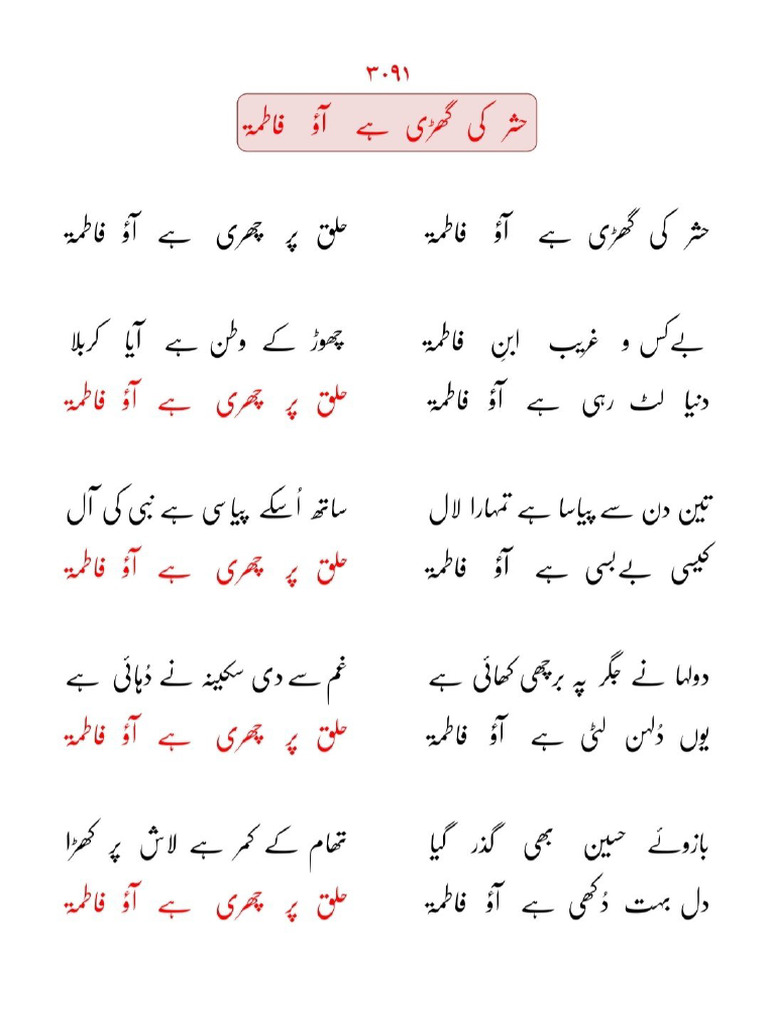 ۳۰۹۱
حشر کی گھڑی ہے آؤ فاطمۃ
حشر کی گھڑی ہے آؤ فاطمۃ حلق پر چھری ہے آؤ فاطمۃ
بےکس و غریب ابنِ فاطمۃ چھوڑ کے وطن ہے آیا کربلا
دنیا لٹ رہی ہے آؤ فاطمۃ حلق پر چھری ہے آؤ فاطمۃ
تین دن سے پیاسا ہے تمہارا لال ساتھ اُسکے پیاسی ہے نبی کی آل
کیسی بےبسی ہے آؤ فاطمۃ حلق پر چھری ہے آؤ فاطمۃ
دولہا نے جگر پہ برچھی کھائی ہے غم سے دی سکینہ نے دُہائی ہے
یوں دُلہن لٹی ہے آؤ فاطمۃ حلق پر چھری ہے آؤ فاطمۃ
بازوئے حسین بھی گذر گیا تھام کے کمر ہے لاش پر کھڑا
دل بہت دُکھی ہے آؤ فاطمۃ حلق پر چھری ہے آؤ فاطمۃ